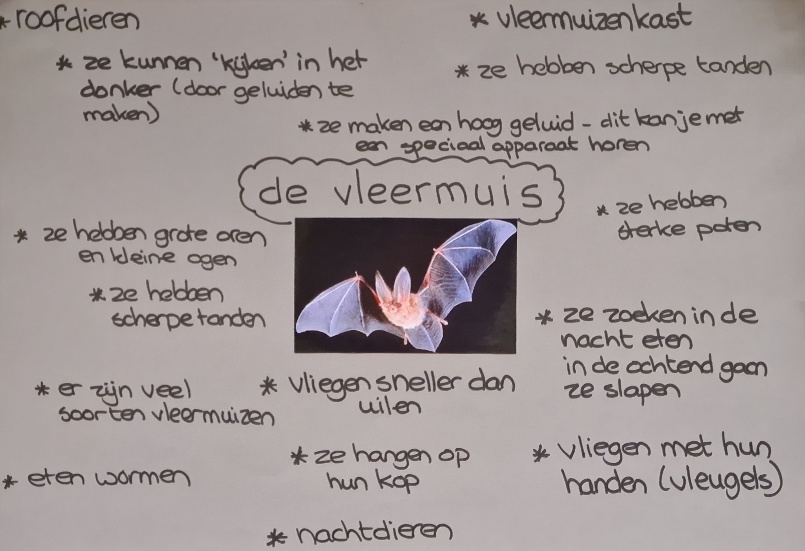 * roofdieren
* vleermuizenkast
* ze kunnen 'kijken' in het
donker (door geluiden te
maken)
* ze hebben scherpe tanden
* ze maken een hoog geluid - dit kan je met
een speciaal apparaat horen
de vleermuis
* ze hebben
sterke poten
* ze hebben grote oren
en kleine ogen
* ze hebben
scherpe tanden
* ze zoeken in de
nacht eten
in de ochtend gaan
ze slapen
* er zijn veel
soorten vleermuizen
* vliegen sneller dan
uilen
* eten wormen
* ze hangen op
hun kop
* vliegen met hun
handen (vleugels)
* nachtdieren